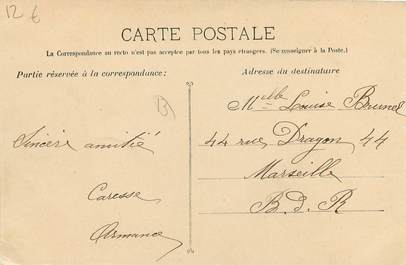 12 €
CARTE POSTALE
La Correspondance au recto n'est pas acceptée par tous les pays étrangers. (Se renseigner à la Poste.)
Partie réservée à la correspondance:
Adresse du destinataire
13
Sincère amitié
Caresse
Armance
Melle Louise Brunel
44 rue Dragon 44
Marseille
B. d. R